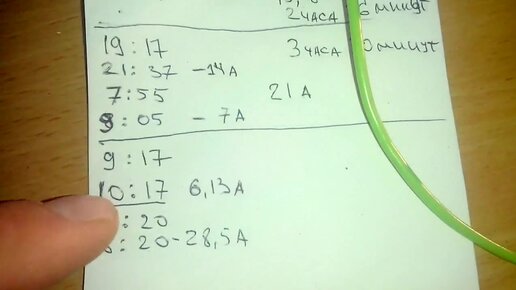 2 часа 6 минут
19:17 3 часа 0 минут
21:37 - 14А
7:55 21А
8:05 - 7А
9:17
10:17 6,13А
:20
:20-28,5А